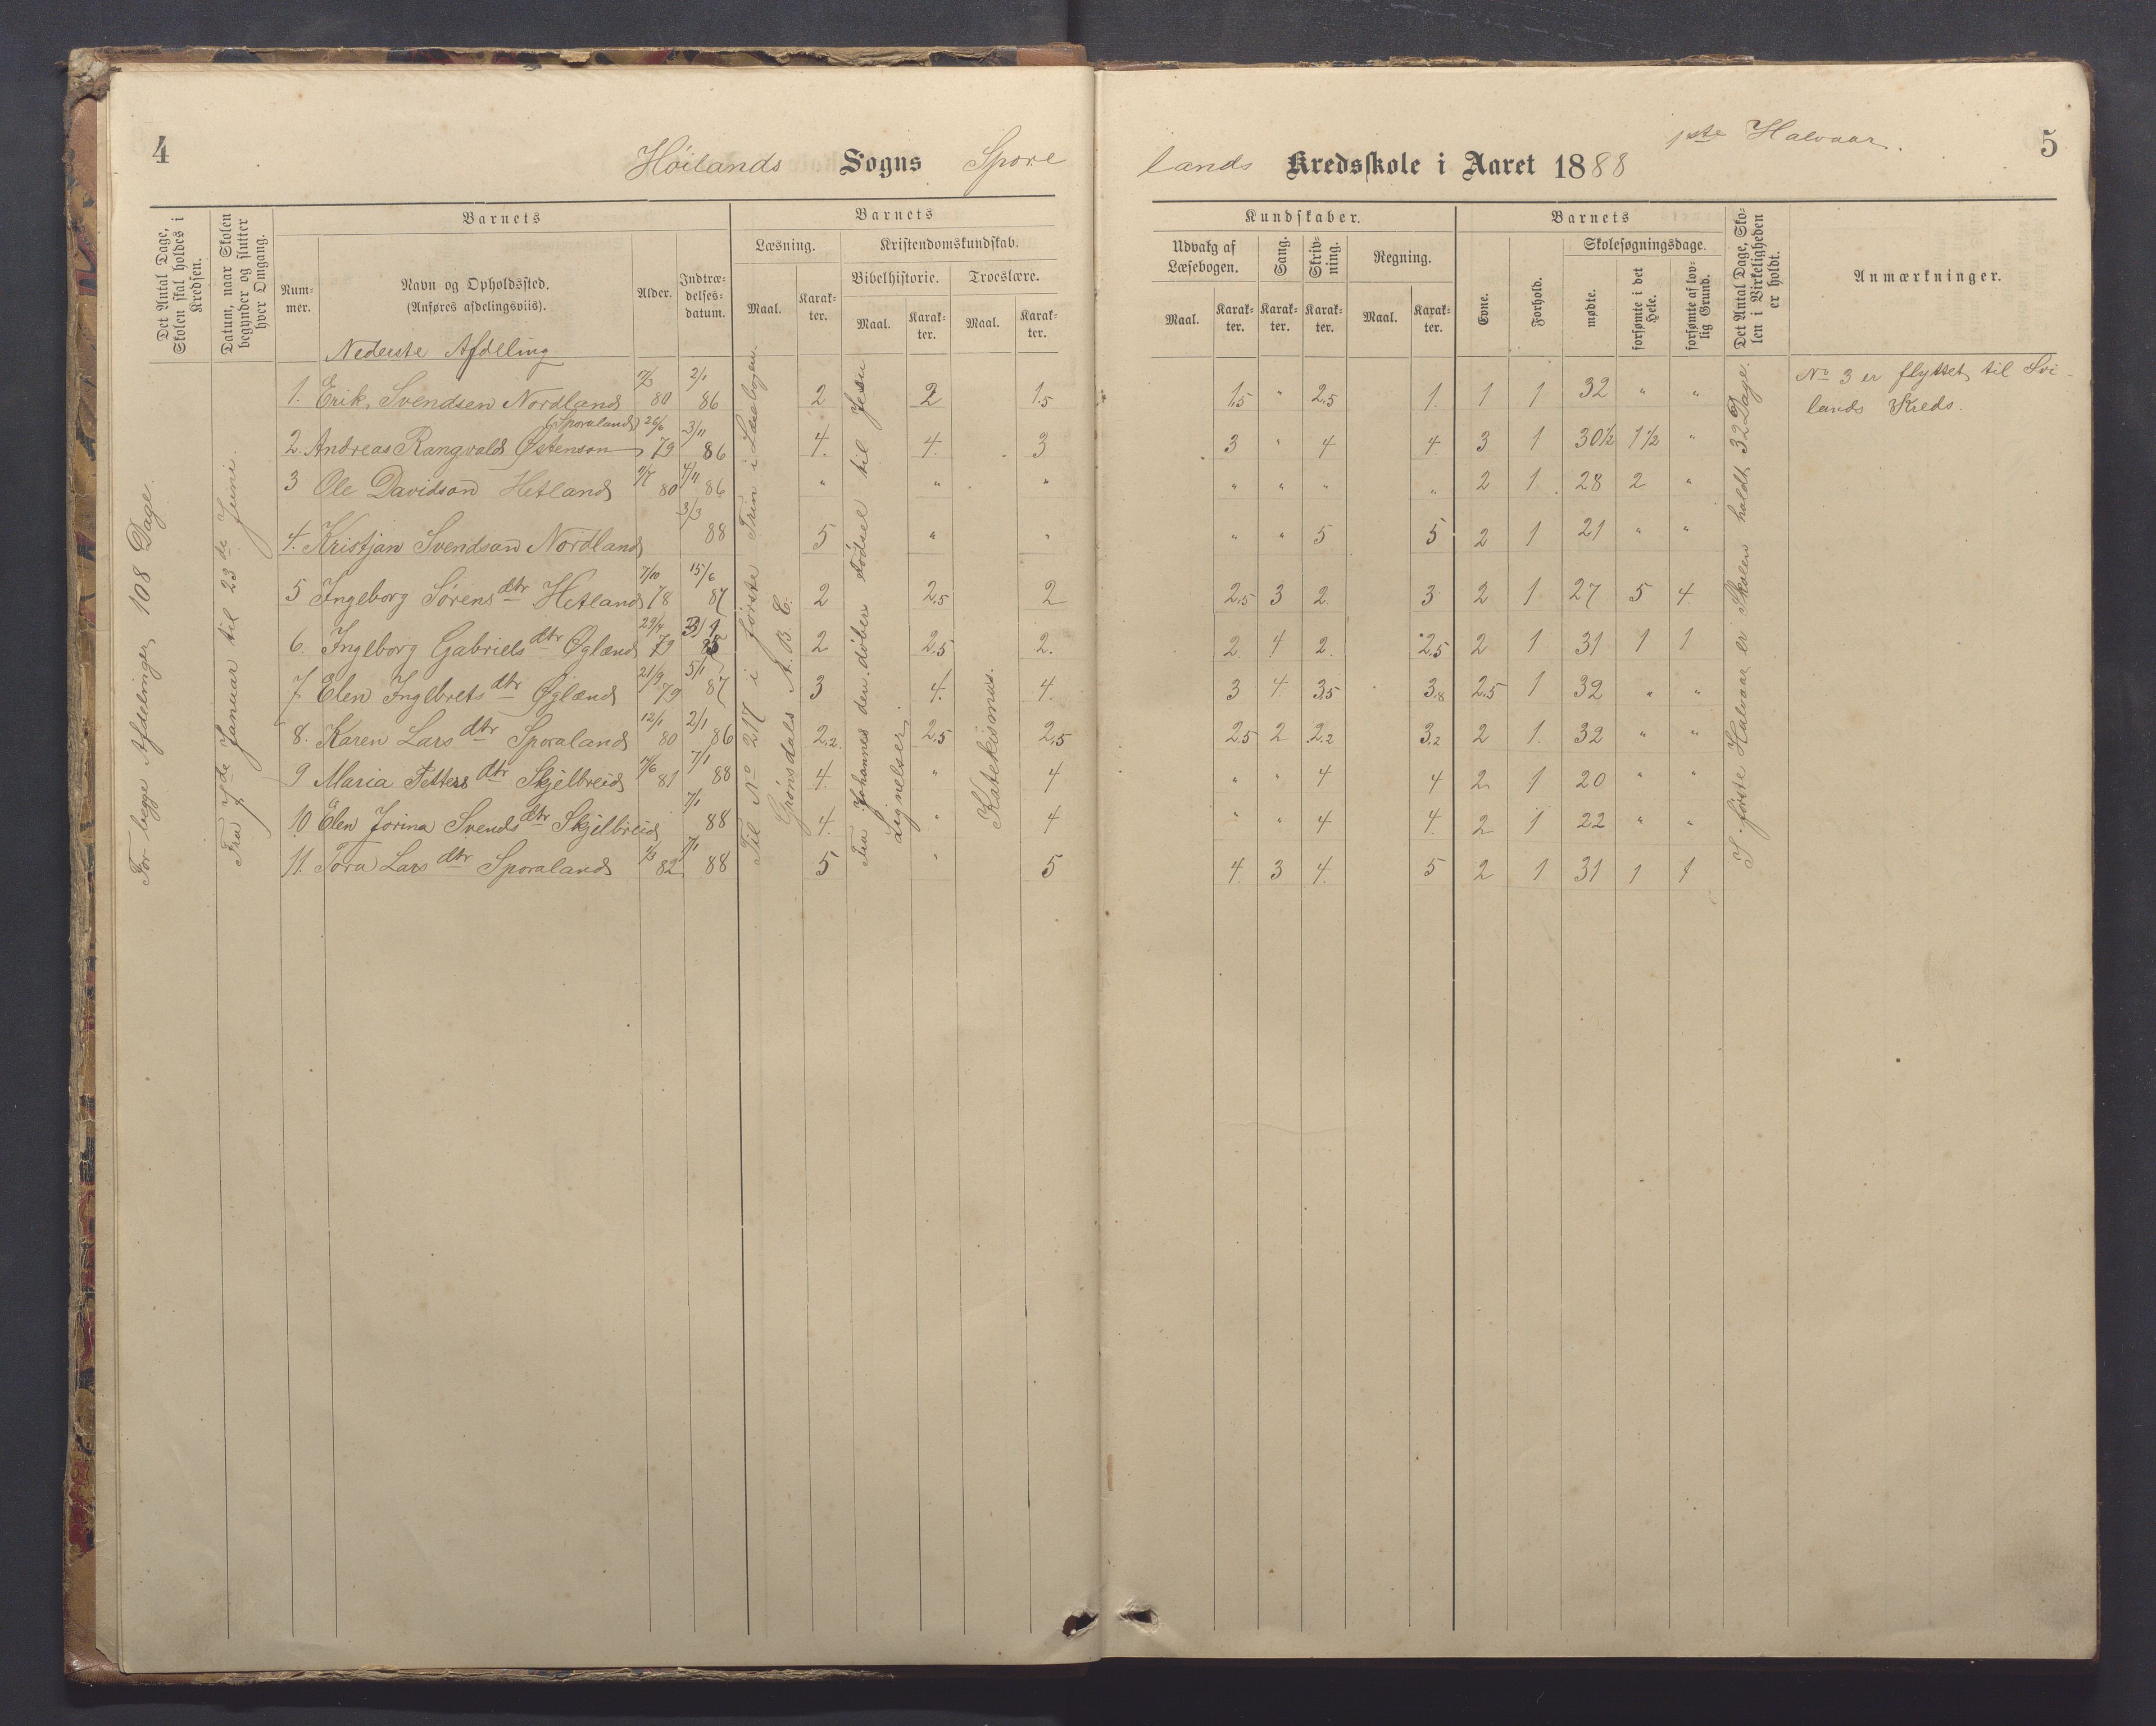 4
Höilands Sogns Spore
lands Kredsskole i Aaret 1888
1ste Halvaar.
5
Det Antal Dage, Skolen skal holdes i Kredsen.
Datum, naar Skolen begynder og slutter hver Omgang.
Barnets
Nummer.
Navn og Opholdssted.
(Anføres afdelingsviis).
Alder.
Indtrædelsesdatum.
Barnets
Læsning.
Maal.
Karakter.
Kristendomskundskab.
Bibelhistorie.
Maal.
Karakter.
Troeslære.
Maal.
Karakter.
Kundskaber.
Udvalg af Læsebogen.
Maal.
Karakter.
Sang.
Karakter.
Skrivning.
Karakter.
Regning.
Maal.
Karakter.
Barnets
Evne.
Forhold.
Skolesøgningsdage.
mødte.
forsømte i det Hele.
forsømte af lovlig Grund.
Det Antal Dage, Skolen i Virkeligheden er holdt.
Anmærkninger.
For begge Afdelinger 108 Dage.
Fra 7de Januar til 23de Juni.
Til No 217 i første Trin i Læsebogen.
Grønsdals A.B.C.
Fra Johannes den døbers Fødsel til Jesu
Lignelser.
Katekismus.
I første Halvaar er Skolen holdt 32 Dage.
Nederste Afdeling
1. Erik Svendsen Nordland 7/3 80 2/1 86 2 2 1.5 1,5 " 2,5 1. 1 1 32 " "
(Sporaland)
2. Andreas Rangvald Østenson 26/6 79 3/11 86 4. 4. 3 3 " 4 4 3 1 30½ 1½ "
3 Ole Davidson Hetland 1/7 80 4/11 86 " " " " " " " 2 1 28 2 "
4. Kristjan Svendson Nordland 3/3 88 5 " " " " 5 5 2 1 21 " "
5 Ingeborg Sørensdtr Hetland 7/10 78 15/6 87 2 2,5 2 2,5 3 2 3 2 1 27 5 4
6. Ingeborg Gabrielsdtr Øglænd 29/4 79 2 2,5 2. 2. 4 2 2,5 2 1 31 1 1
7. Elen Ingebretsdtr Øglænd 21/9 79 5/1 87 3 4. 4. 3 4 3,5 3,8 2,5 1 32 " "
8. Karen Larsdtr Sporaland 12/1 80 2/1 86 2,2 2,5 2,5 2,5 2 2,2 3,2 2 1 32 " "
9 Maria Pettersdtr Skjelbreid 7/6 81 7/1 88 4. " 4 " " 4 4 2 1 20 " "
10 Elen Jorina Svendsdtr Skjelbreid 7/1 88 4. " 4 " " 4 4. 2 1 22 " "
11. Tora Larsdtr Sporaland 1/3 82 7/1 88 5 " 5 4. 3 4. 5 2 1 31 1 1
No 3 er flyttet til Svi-
lands Kreds.